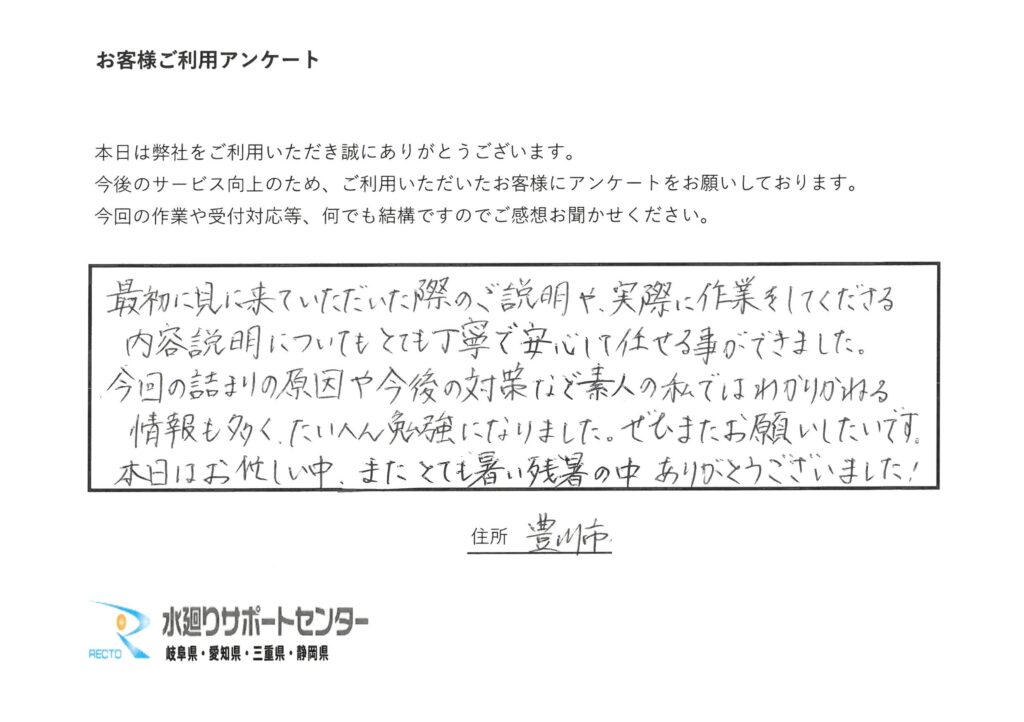 お客様ご利用アンケート
本日は弊社をご利用いただき誠にありがとうございます。
今後のサービス向上のため、ご利用いただいたお客様にアンケートをお願いしております。
今回の作業や受付対応等、何でも結構ですのでご感想お聞かせください。
最初に見に来ていただいた際のご説明や、実際に作業をしてくださる
内容説明についてもとても丁寧で安心して任せる事ができました。
今回の詰まりの原因や今後の対策など素人の私ではわかりかねる
情報も多く、たいへん勉強になりました。ぜひまたお願いしたいです。
本日はお忙しい中、またとても暑い残暑の中ありがとうございました!
住所 豊川市
RECTO 水廻りサポートセンター
岐阜県・愛知県・三重県・静岡県